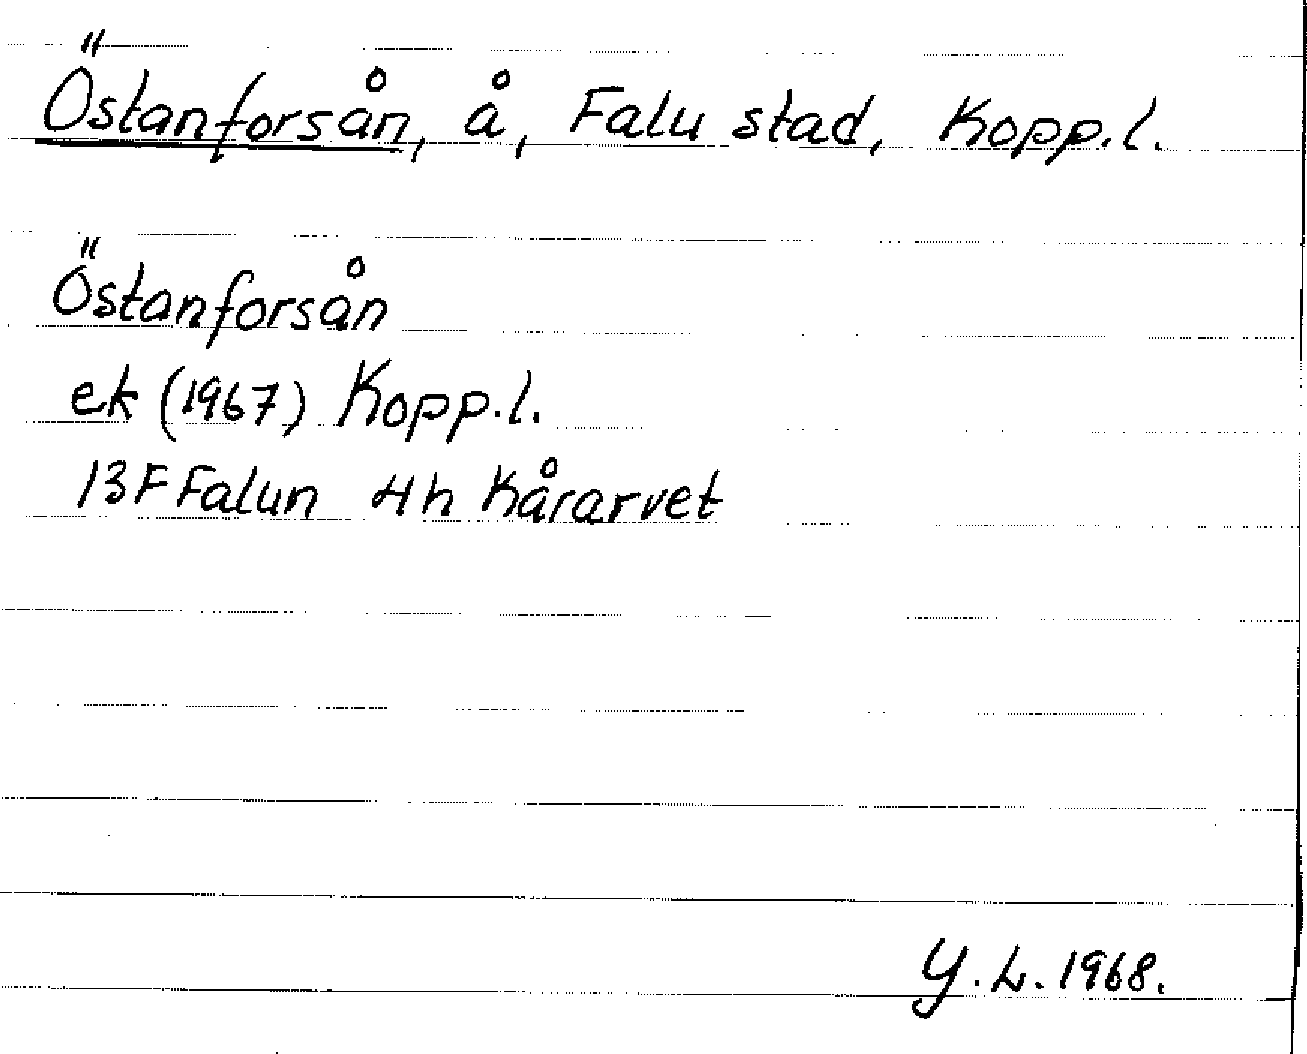 Östanforsån, å, Falu stad, Kopp.l.
Östanforsån
ek (1967) Kopp.l.
13F Falun 4h Kårarvet
Y.L. 1968.